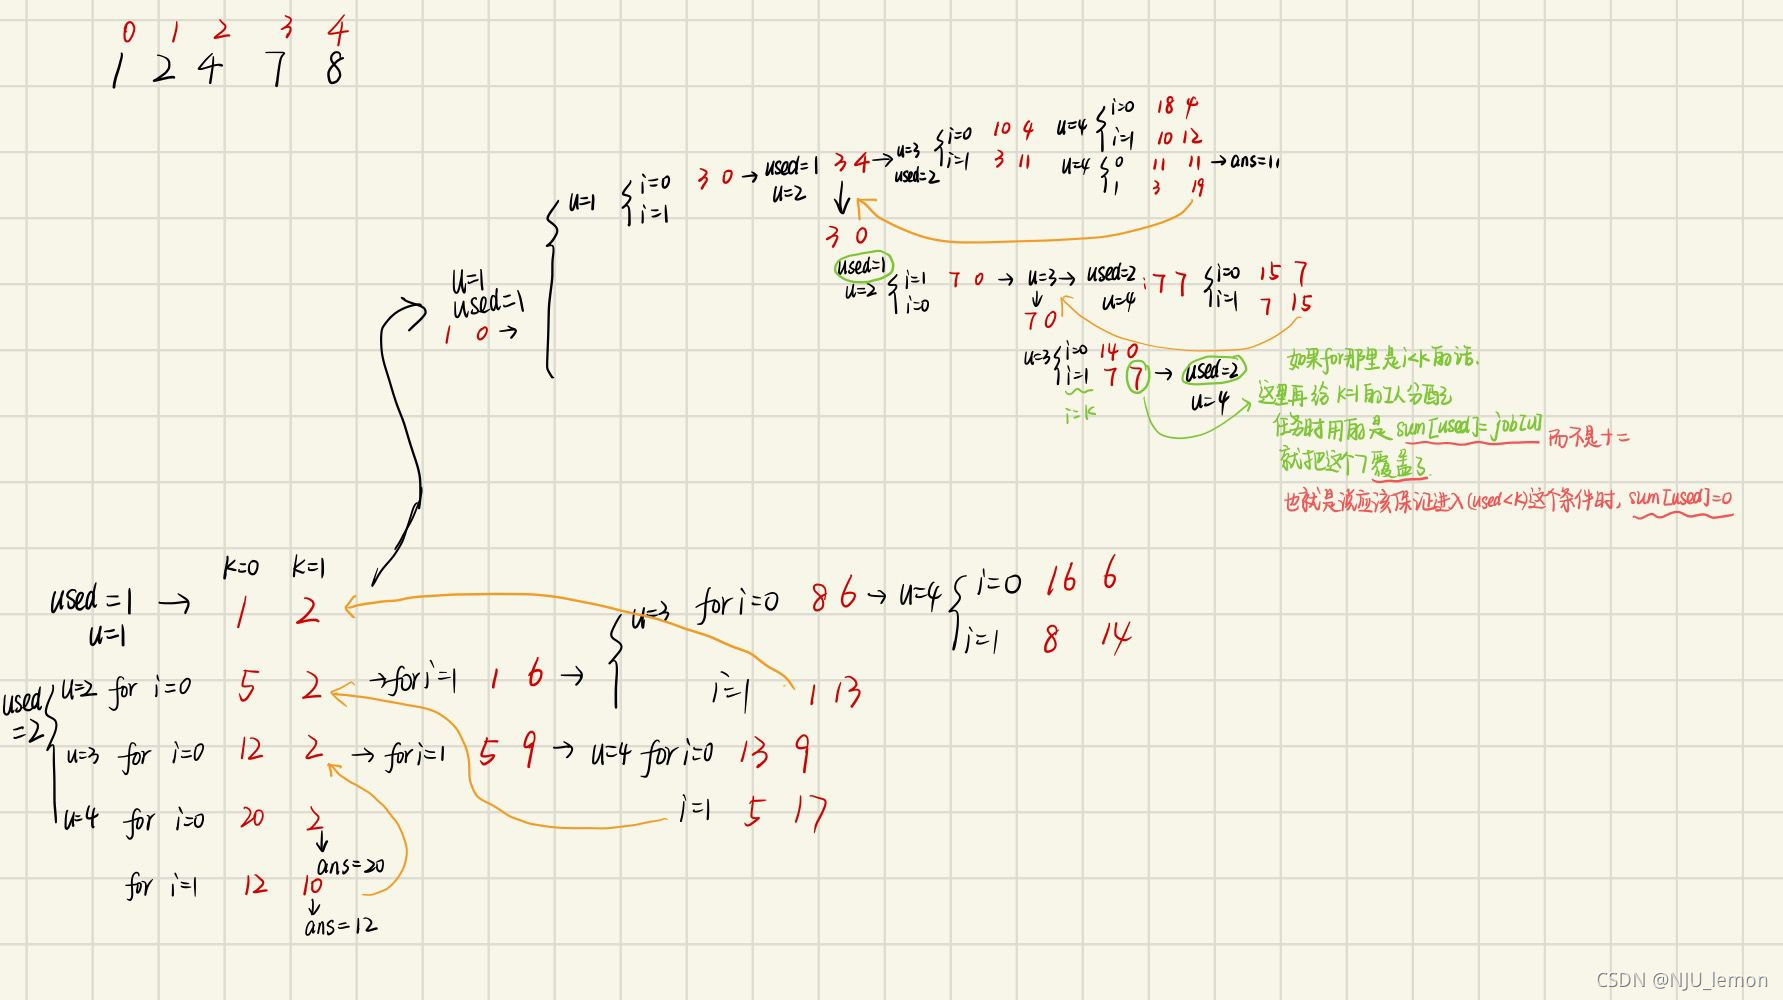 0 1 2 3 4
1 2 4 7 8
u=1 i=0 3 0 → used=1 3 4 → u=3 i=0 10 4 u=4 i=0 18 4
i=1 u=2 used=2 i=1 3 11 i=1 10 12
u=4 0 11 11 → ans=11
1 3 19
3 0
used=1
u=2 i=1 7 0 → u=3 → used=2 : 7 7 i=0 15 7
i=0 u=4 i=1 7 15
7 0
u=3 i=0 14 0
i=1 7 7 → used=2
i=k u=4
u=1
used=1
1 0 →
如果for那里是i<k的话.
这里再给k=1的工人分配
任务时用的是 sum[used]=job[u] 而不是+=
就把这个7覆盖了.
也就是说应该保证进入(used<k)这个条件时, sum[used]=0
k=0 k=1
used=1 → 1 2
u=1
u=3 for i=0 8 6 → u=4 i=0 16 6
i=1 8 14
used=2 u=2 for i=0 5 2 → for i=1 1 6 → i=1 1 13
u=3 for i=0 12 2 → for i=1 5 9 → u=4 for i=0 13 9
i=1 5 17
u=4 for i=0 20 2
ans=20
for i=1 12 10
ans=12
CSDN @NJU_lemon